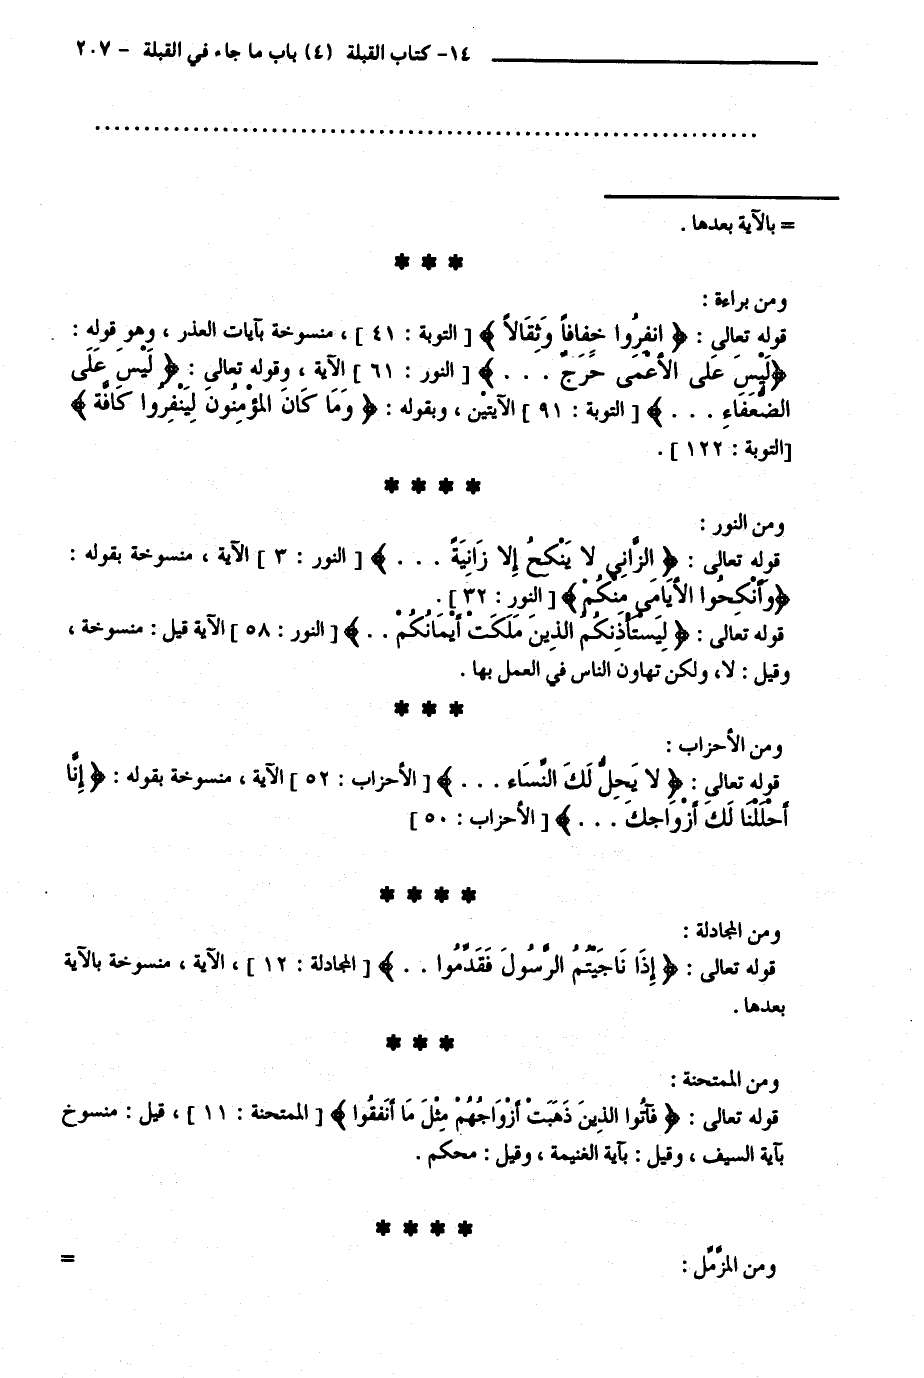 ١٤- كتاب القبلة (٤) باب ما جاء في القبلة - ٢٠٧
= بالآية بعدها .
ومن براءة :
قوله تعالى : ﴿ انفِرُوا خِفافاً وَثِقَالاً ﴾ [ التوبة : ٤١ ] ، منسوخة بآيات العذر ، وهو قوله :
﴿لَيْسَ عَلى الأَعْمَى حَرَجٌ . . . ﴾ [ النور : ٦١ ] الآية ، وقوله تعالى : ﴿ لَيْسَ عَلَى
الضُّعَفَاءِ . . . ﴾ [ التوبة : ٩١ ] الآيتيْن ، وبقوله : ﴿ وَمَا كَانَ المُؤْمِنُونَ لِيَنْفِرُوا كَافَّة ﴾
[التوبة : ١٢٢ ] .
ومن النور :
قوله تعالى : ﴿ الزَّانِي لا يَنْكحُ إلا زَانِيَةً . . . ﴾ [ النور : ٣ ] الآية ، منسوخة بقوله :
﴿وأَنْكِحُوا الأَيَامَى مِنْكُمْ ﴾ [ النور : ٣٢ ] .
قوله تعالى : ﴿ لِيَسْتَأْذِنكُمُ الذينَ مَلَكَتْ أَيْمَانُكُمْ . . ﴾ [ النور : ٥٨ ] الآية قيل : منسوخة ،
وقيل : لا، ولكن تهاون الناس في العمل بها .
ومن الأحزاب :
قوله تعالى : ﴿ لا يَحِلُّ لَكَ النِّسَاء . . . ﴾ [ الأحزاب : ٥٢ ] الآية ، منسوخة بقوله : ﴿ إِنَّا
أَحْلَلْنَا لَكَ أَزْوَاجكَ . . . ﴾ [ الأحزاب : ٥٠ ]
ومن المجادلة :
قوله تعالى : ﴿ إِذَا نَاجَيْتُمُ الرَّسُولَ فَقَدِّمُوا . . ﴾ [ المجادلة : ١٢ ] ، الآية ، منسوخة بالآية
بعدها .
ومن الممتحنة :
قوله تعالى : ﴿ فَآتُوا الذينَ ذَهَبَتْ أَزْوَاجُهُمْ مِثْلَ مَا أَنفقُوا ﴾ [ الممتحنة : ١١ ] ، قيل : منسوخ
بآية السيف ، وقيل : بآية الغنيمة ، وقيل : محكم .
ومن المزَّمِّل :
=